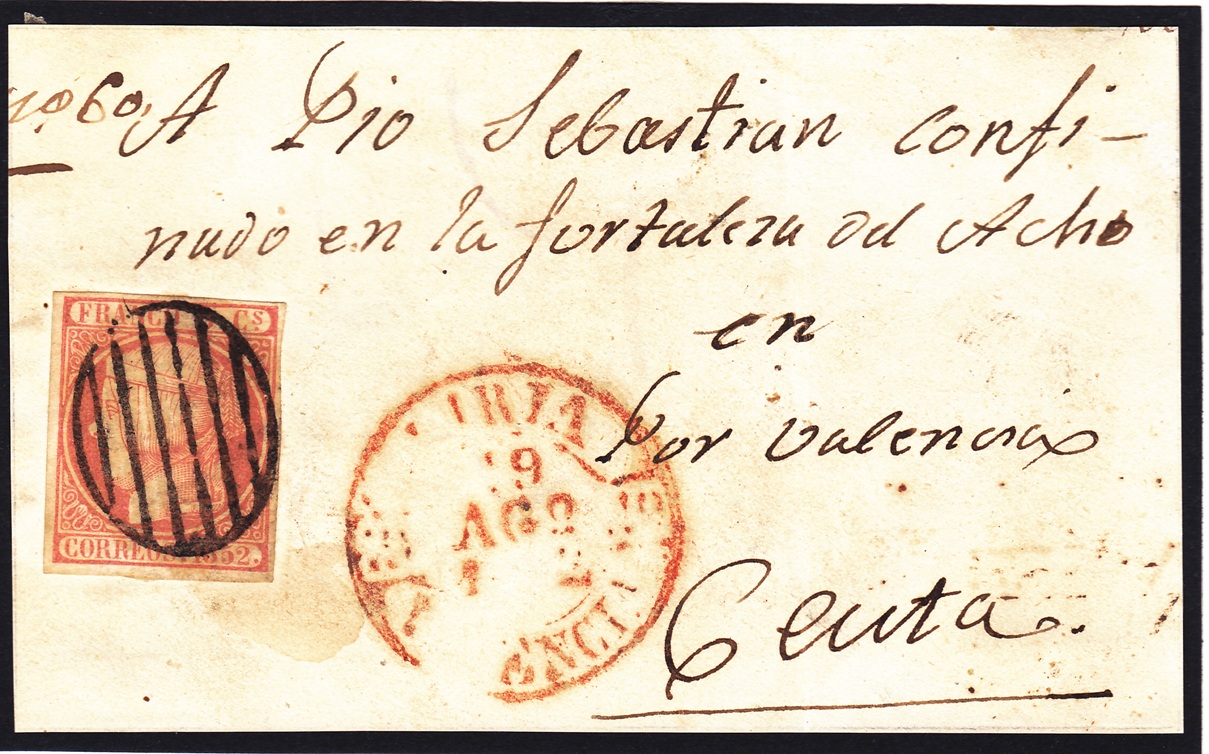 A Pio Sebastian confi-
nado en la fortaleza del Acho
en
Por Valencia
Ceuta.
FRANCO Cs
CORREOS. 1852.
LIRIA
19
AGO
1
VALENCIA